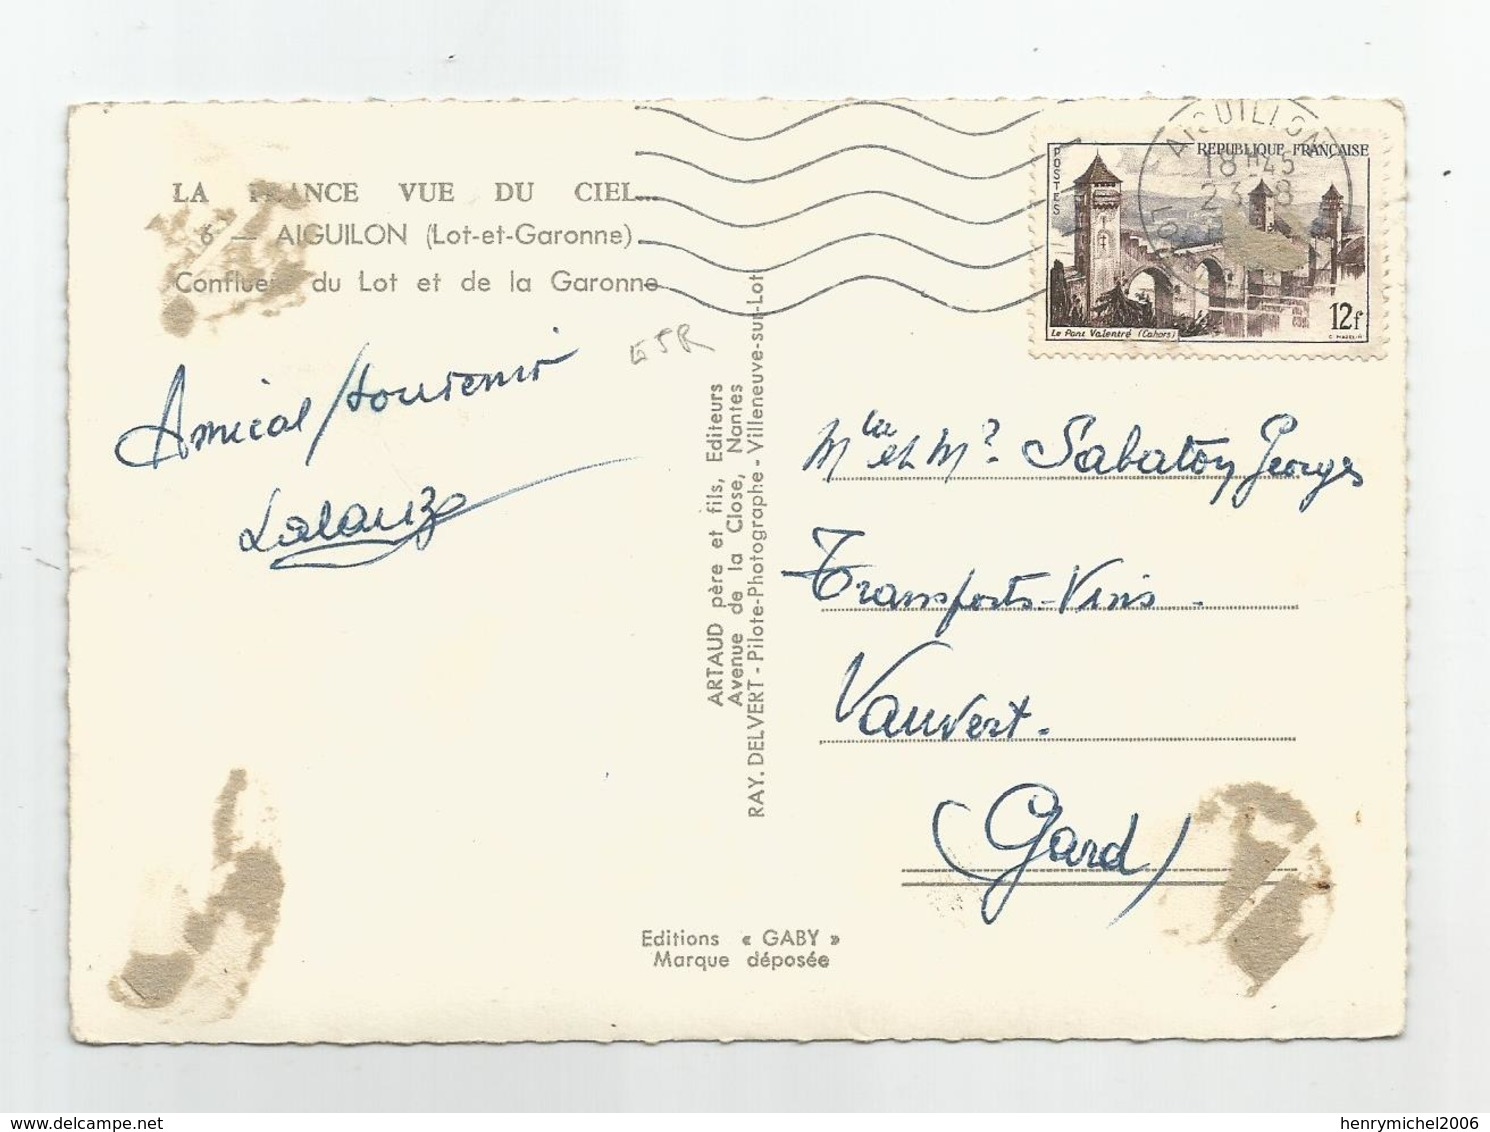 LA FRANCE VUE DU CIEL...
6 — AIGUILON (Lot-et-Garonne)
Confluent du Lot et de la Garonne
Amical souvenir
Lalauze
ARTAUD père et fils, Editeurs
Avenue de la Close, Nantes
RAY. DELVERT - Pilote-Photographe - Villeneuve-sur-Lot
AIGUILLON
18 H 45
23 - 8
POSTES
REPUBLIQUE FRANÇAISE
Le Pont Valentré (Cahors)
12f
Mlle et Mr Sabaton Georges
Transports-Vins.
Vauvert.
(Gard)
Editions « GABY »
Marque déposée
delcampe.net
henrymichel2006